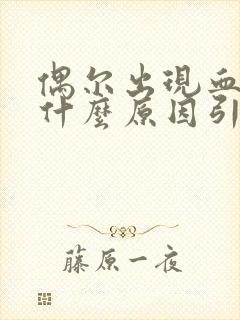 偶尔出現血
什麼原因引
藤原一夜